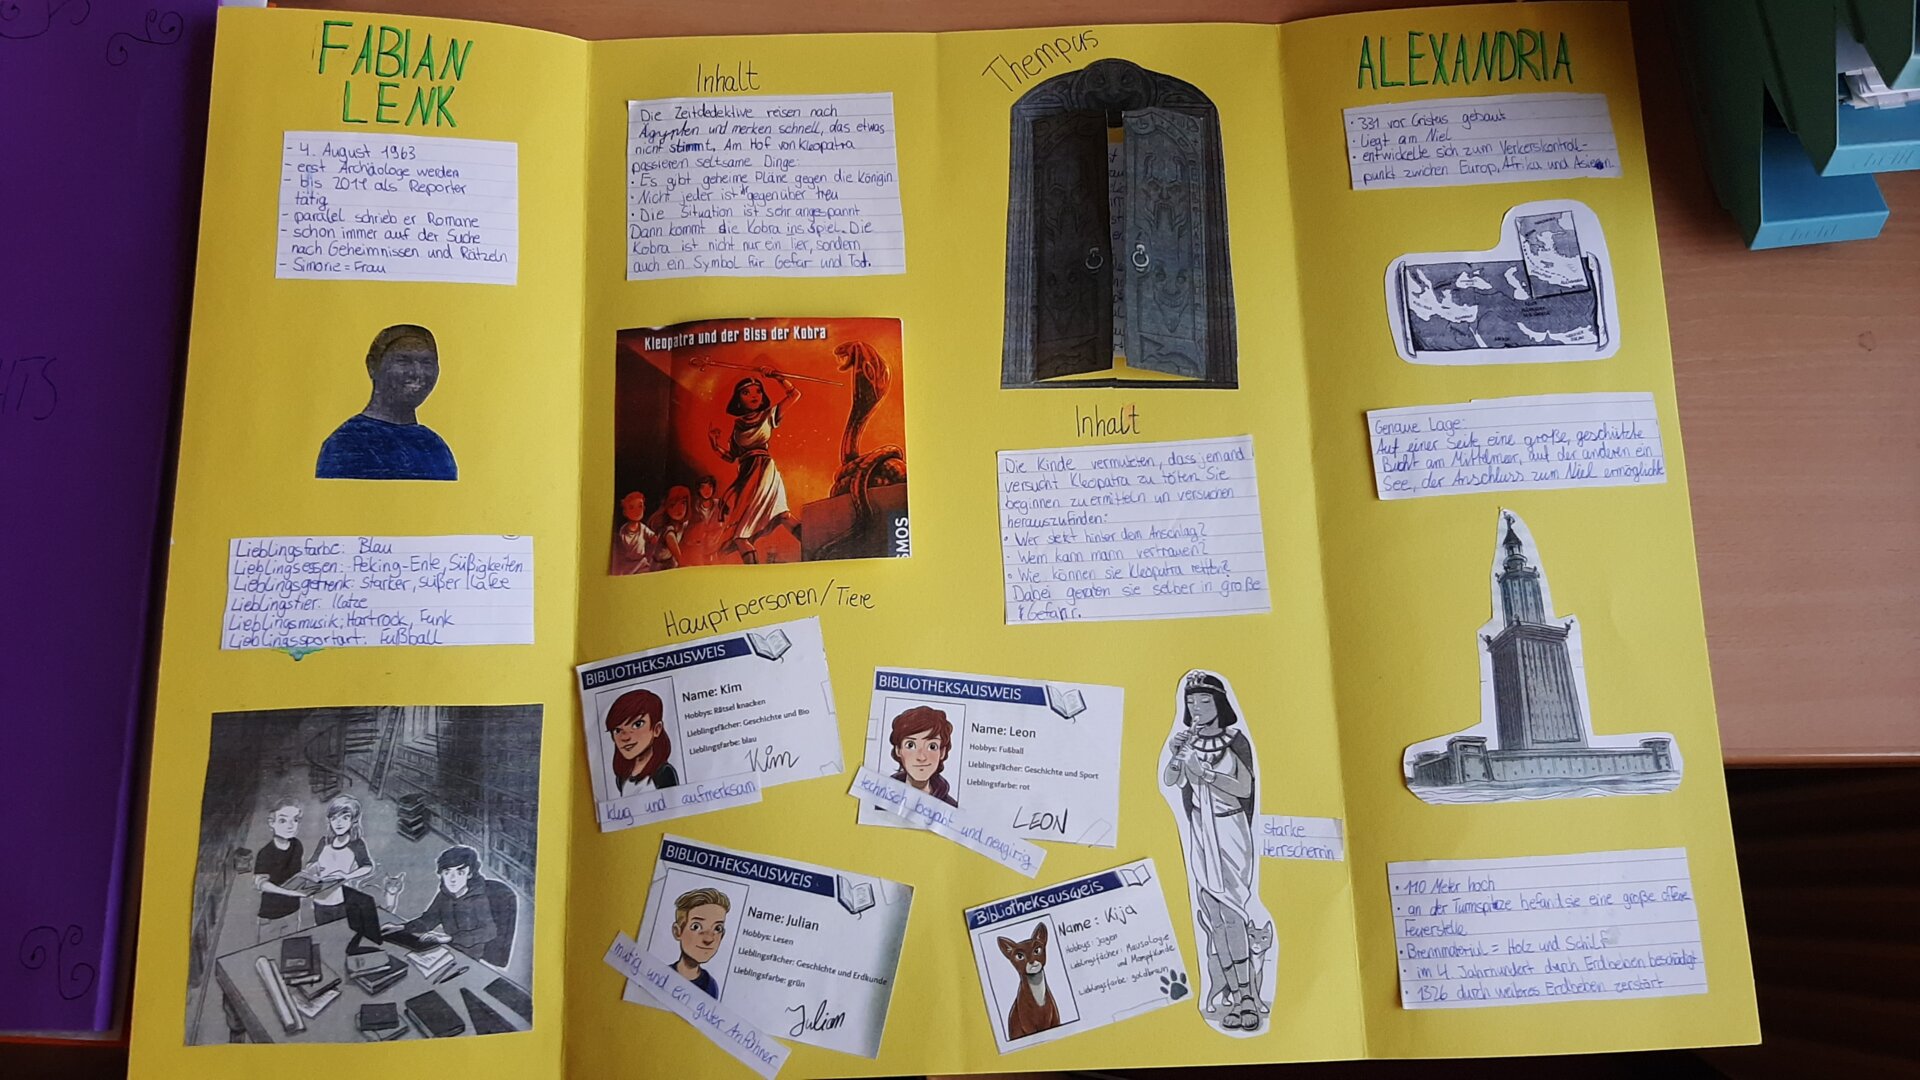 FABIAN
LENK
- 4. August 1963
- erst Archäologe werden
- bis 2011 als Reporter
tätig
- paralel schrieb er Romane
- schon immer auf der Suche
nach Geheimnissen und Rätzeln
- Simone = Frau
Lieblingsfarbe: Blau
Lieblingsessen: Peking-Ente, Süßigkeiten
Lieblingsgetrenk: starker, süßer Kafee
Lieblingstier: Katze
Lieblingsmusik: Hartrock, Funk
Lieblingssportart: Fußball
Inhalt
Die Zeitdedektive reisen nach
Ägypten und merken schnell, das etwas
nicht stimmt. Am Hof von Kleopatra
passieren seltsame Dinge:
• Es gibt geheime Pläne gegen die Königin
• Nicht jeder ist gegenüber treu
• Die Situation ist sehr angespannt
Dann kommt die Kobra ins Spiel. Die
Kobra ist nicht nur ein Tier, sondern
auch ein Symbol für Gefar und Tod.
Kleopatra und der Biss der Kobra
SMOS
Hauptpersonen/Tiere
BIBLIOTHEKSAUSWEIS
Name: Kim
Hobbys: Rätsel knacken
Lieblingsfächer: Geschichte und Bio
Lieblingsfarbe: blau
Kim
klug und aufmerksam
BIBLIOTHEKSAUSWEIS
Name: Leon
Hobbys: Fußball
Lieblingsfächer: Geschichte und Sport
Lieblingsfarbe: rot
LEON
technisch begabt und neugirig
BIBLIOTHEKSAUSWEIS
Name: Julian
Hobbys: Lesen
Lieblingsfächer: Geschichte und Erdkunde
Lieblingsfarbe: grün
Julian
mutig und ein guter Anführer
Bibliotheksausweis
Name: Kija
Hobbys: Jagen
Lieblingsfächer: Mausologie
und Mampfkunde
Lieblingsfarbe: goldbraun
Thempus
Inhalt
Die Kinde vermuteten, dass jemand
versucht Kleopatra zu töten. Sie
beginnen zu ermitteln un versuchen
herauszufinden:
• Wer stekt hinter dem Anschlag?
• Wem kann mann vertrauen?
• Wie können sie Kleopatra retten?
Dabei geraten sie selber in große
Gefahr.
starke
Herrscherrin
ALEXANDRIA
• 331 vor Cristus gebaut
• liegt am Niel
• entwickelte sich zum Verkerskontrol-
punkt zwichen Europ, Afrika und Asien
Genaue Lage:
Auf einer Seite eine große, geschützte
Bucht am Mittelmeer, auf der anderen ein
See, der Anschluss zum Niel ermöglicht
• 110 Meter hoch
• an der Turmspitze befand sie eine große offene
Feuerstelle
• Brennmaterial = Holz und Schilf
• im 4. Jahrhundert durch Erdbeben beschädigt
• 1326 durch weiteres Erdbeben zerstört